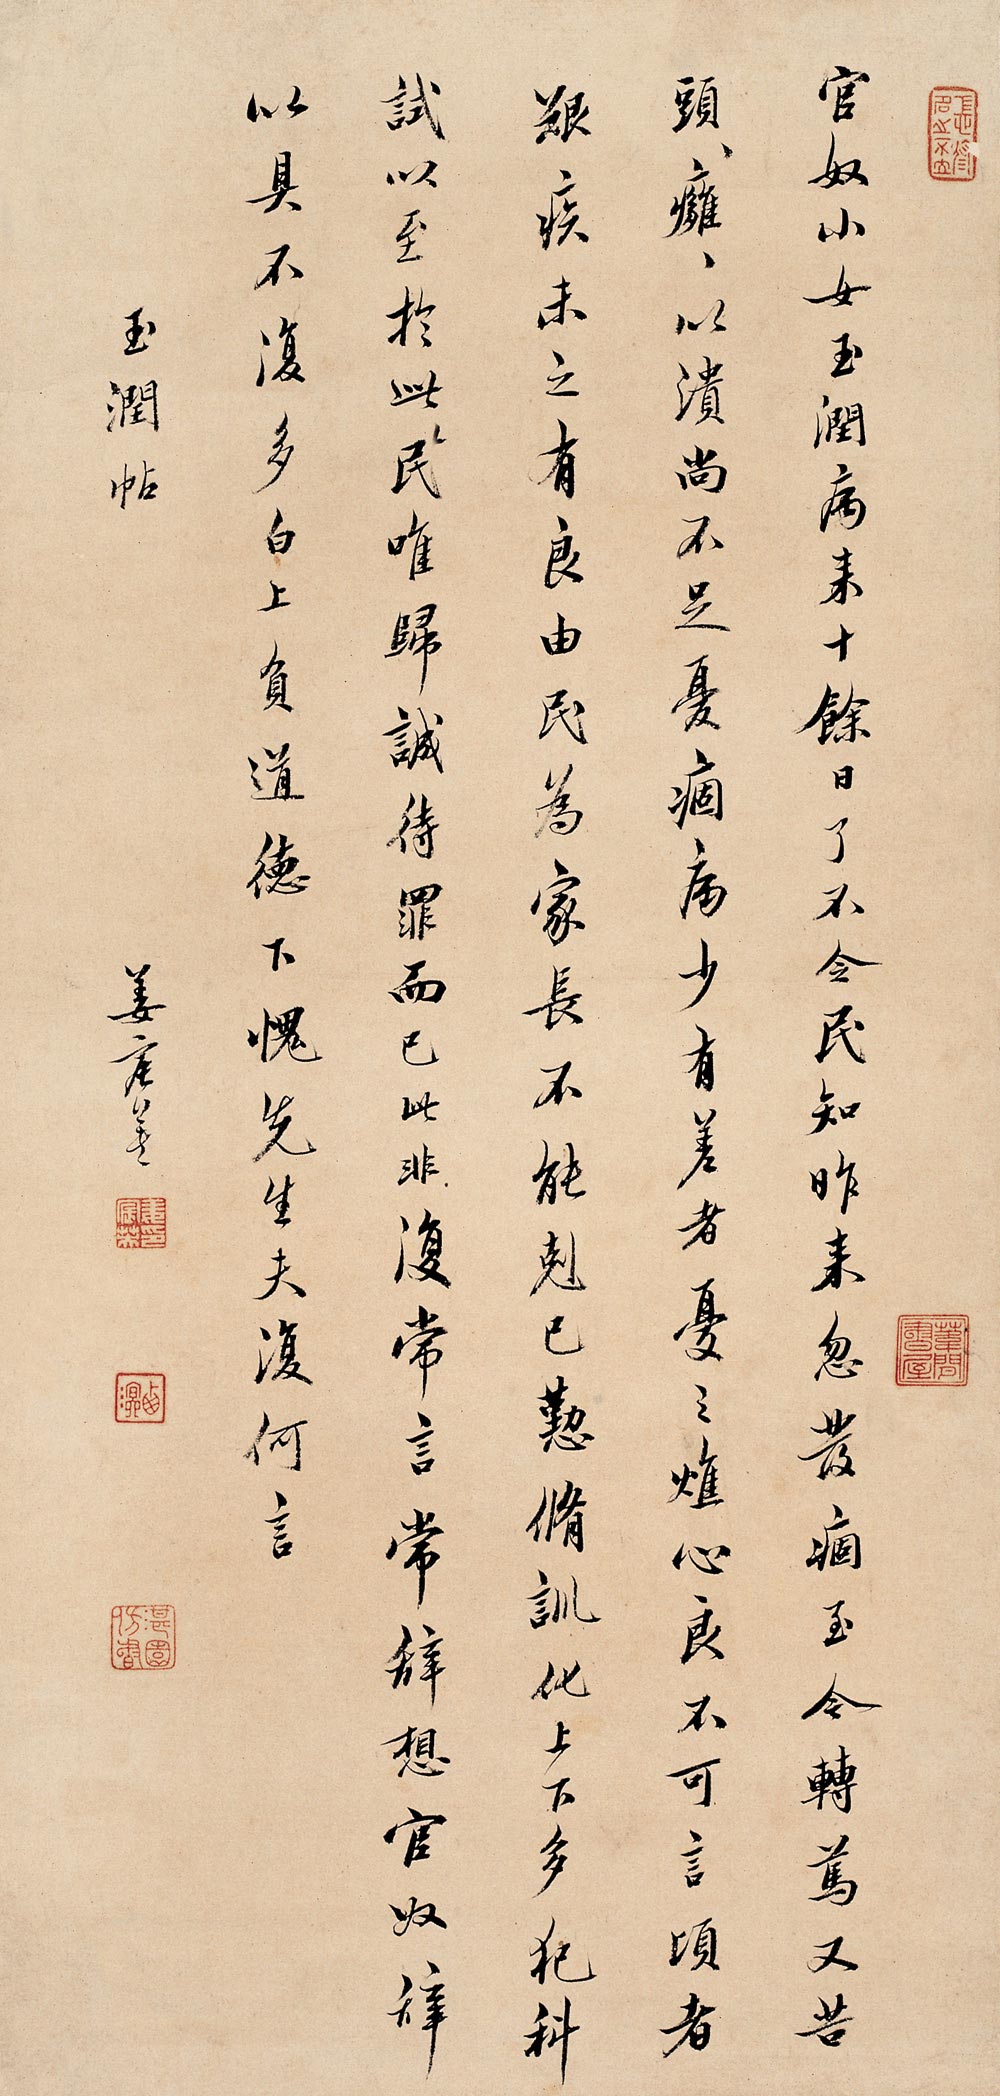 官奴小女玉潤病来十餘日了不令民知昨来忽發痼至今轉篤又苦
頭、癰、以潰尚不足憂痼病少有差者憂之燋心良不可言頃者
艱疾未之有良由民為家長不能剋己懃脩訓化上下多犯科
試以至於此民唯歸誠待罪而已此非復常言常辞想官奴辞
以具不復多白上負道德下愧先生夫復何言
玉潤帖
姜宸英